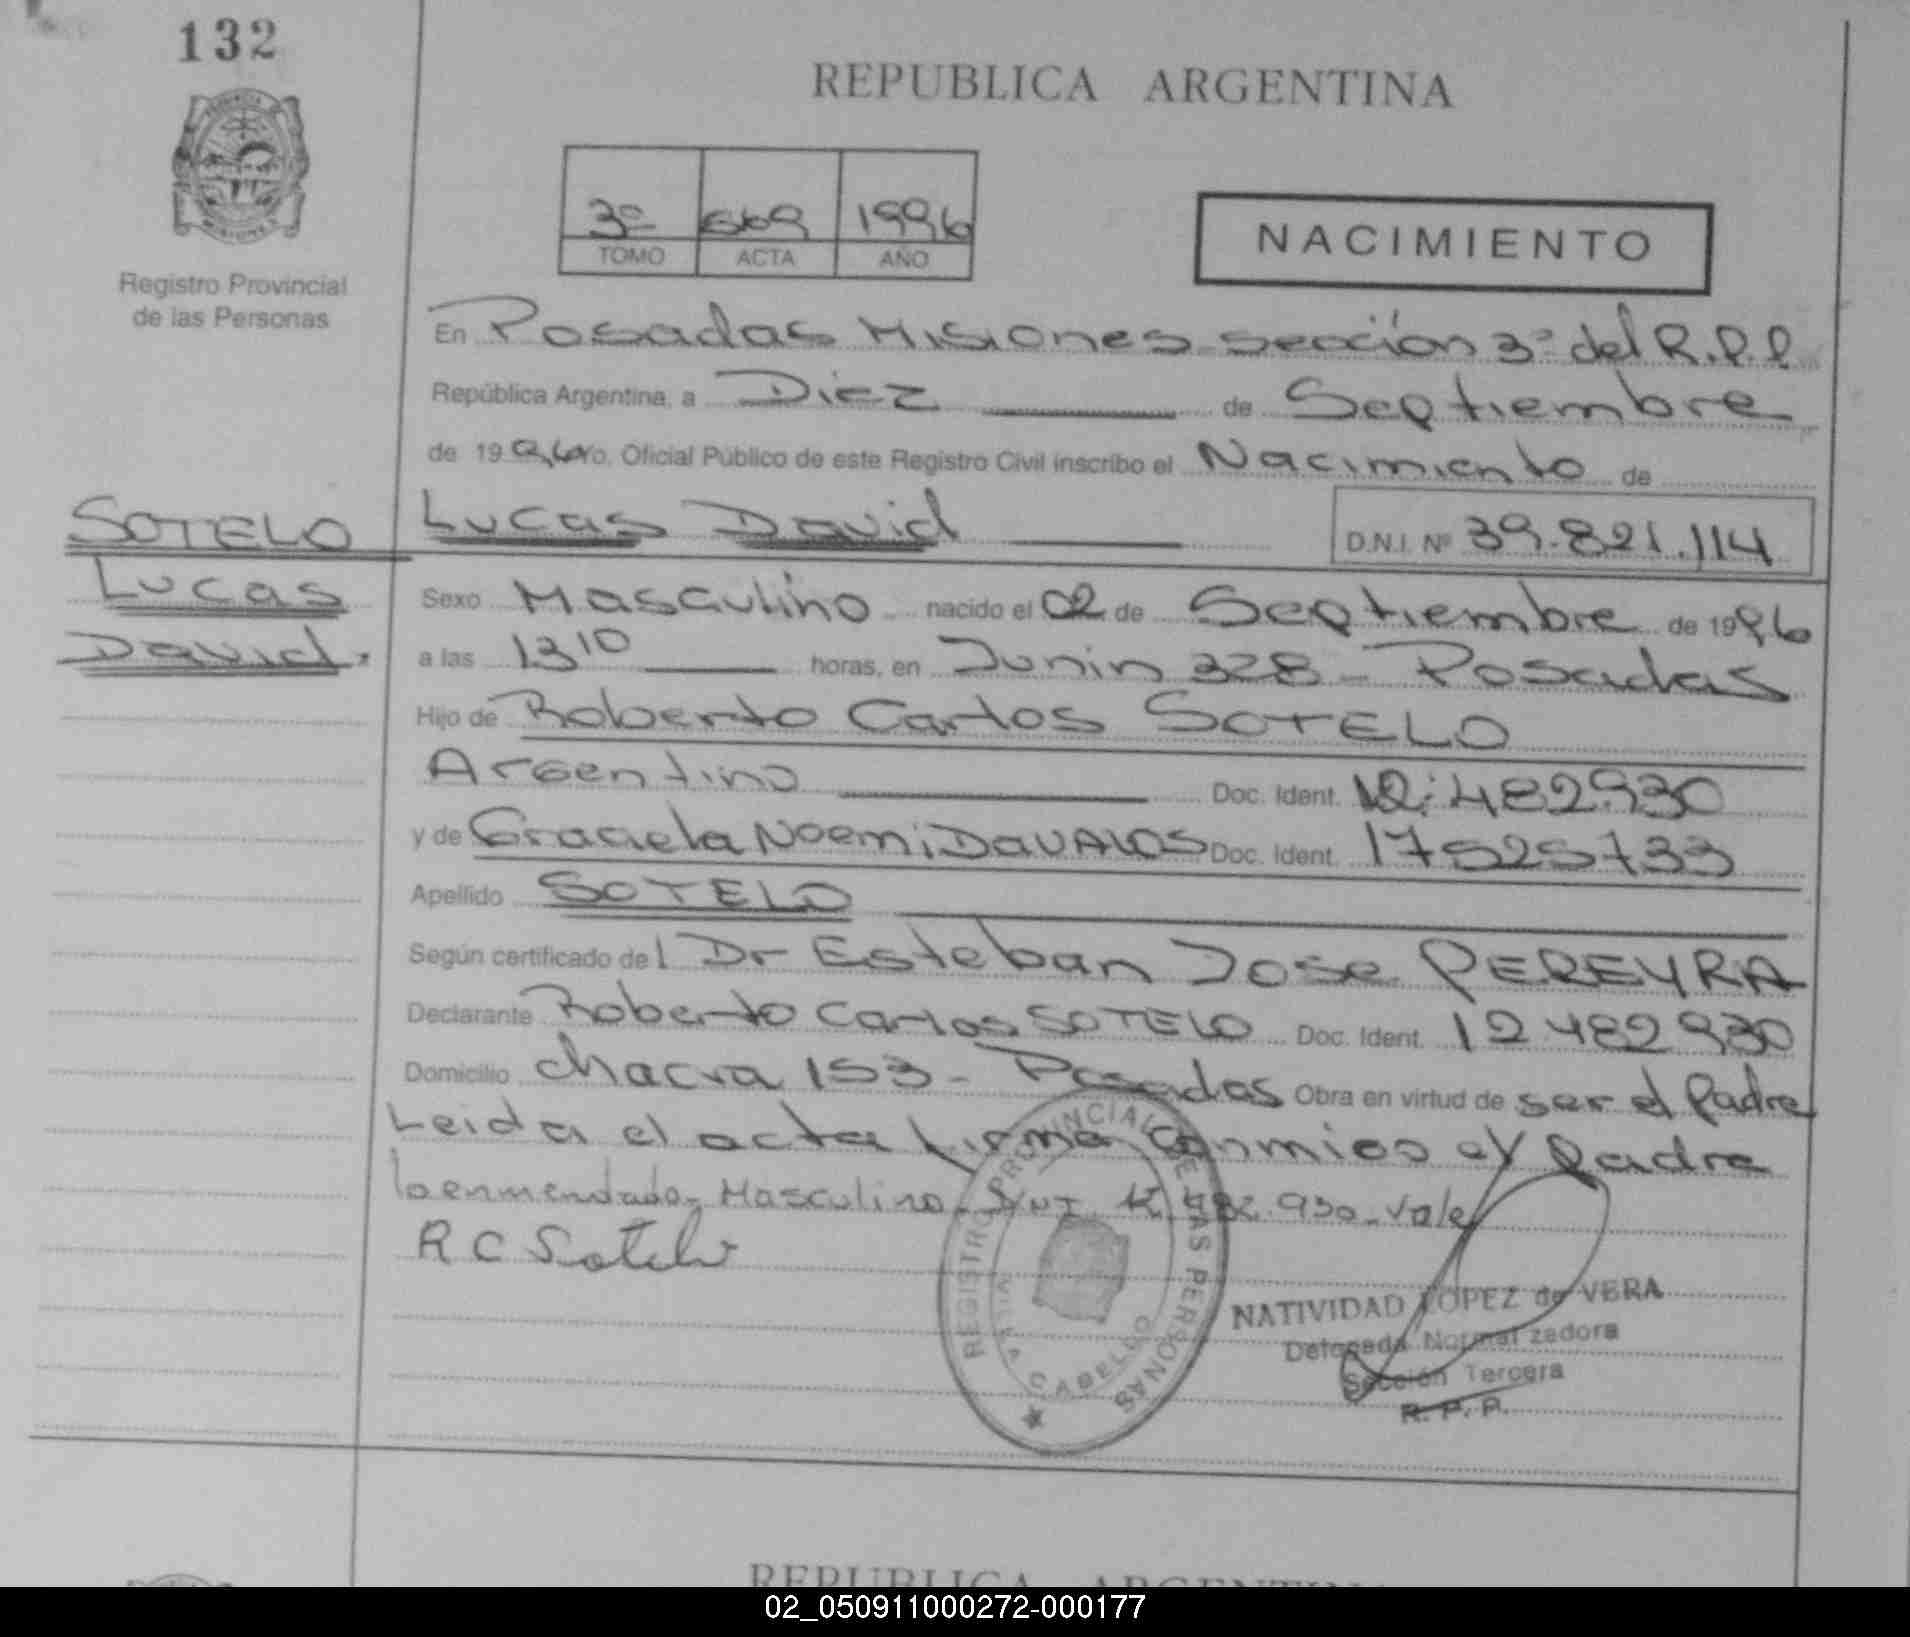 132
REPUBLICA ARGENTINA
3º 669 1996
TOMO ACTA AÑO
NACIMIENTO
Registro Provincial
de las Personas
En Posadas Misiones sección 3º del R.P.P
República Argentina, a Diez de Septiembre
de 1996 Yo, Oficial Público de este Registro Civil inscribo el Nacimiento de
SOTELO
Lucas
David.
Lucas David
D.N.I. Nº 39.821.114
Sexo Masculino nacido el 02 de Septiembre de 1996
a las 13 10 horas, en Junin 328 - Posadas
Hijo de Roberto Carlos SOTELO
Argentino Doc. Ident. 12.482930
y de Graciela Noemi DAVALOS Doc. Ident. 17525733
Apellido SOTELO
Según certificado del Dr Esteban Jose PEREYRA
Declarante Roberto Carlos SOTELO Doc. Ident. 12 482 930
Domicilio chacra 153 - Posadas Obra en virtud de ser el Padre
Leida el acta firma conmigo el Padre
lo enmendado, Masculino, 12.482.930-Vale
R C Sotelo
REGISTRO PROVINCIAL DE LAS PERSONAS
NATIVIDAD LOPEZ de VERA
Delegada Normalizadora
Sección Tercera
R. P. P.
REPUBLICA ARGENTINA
02_050911000272-000177